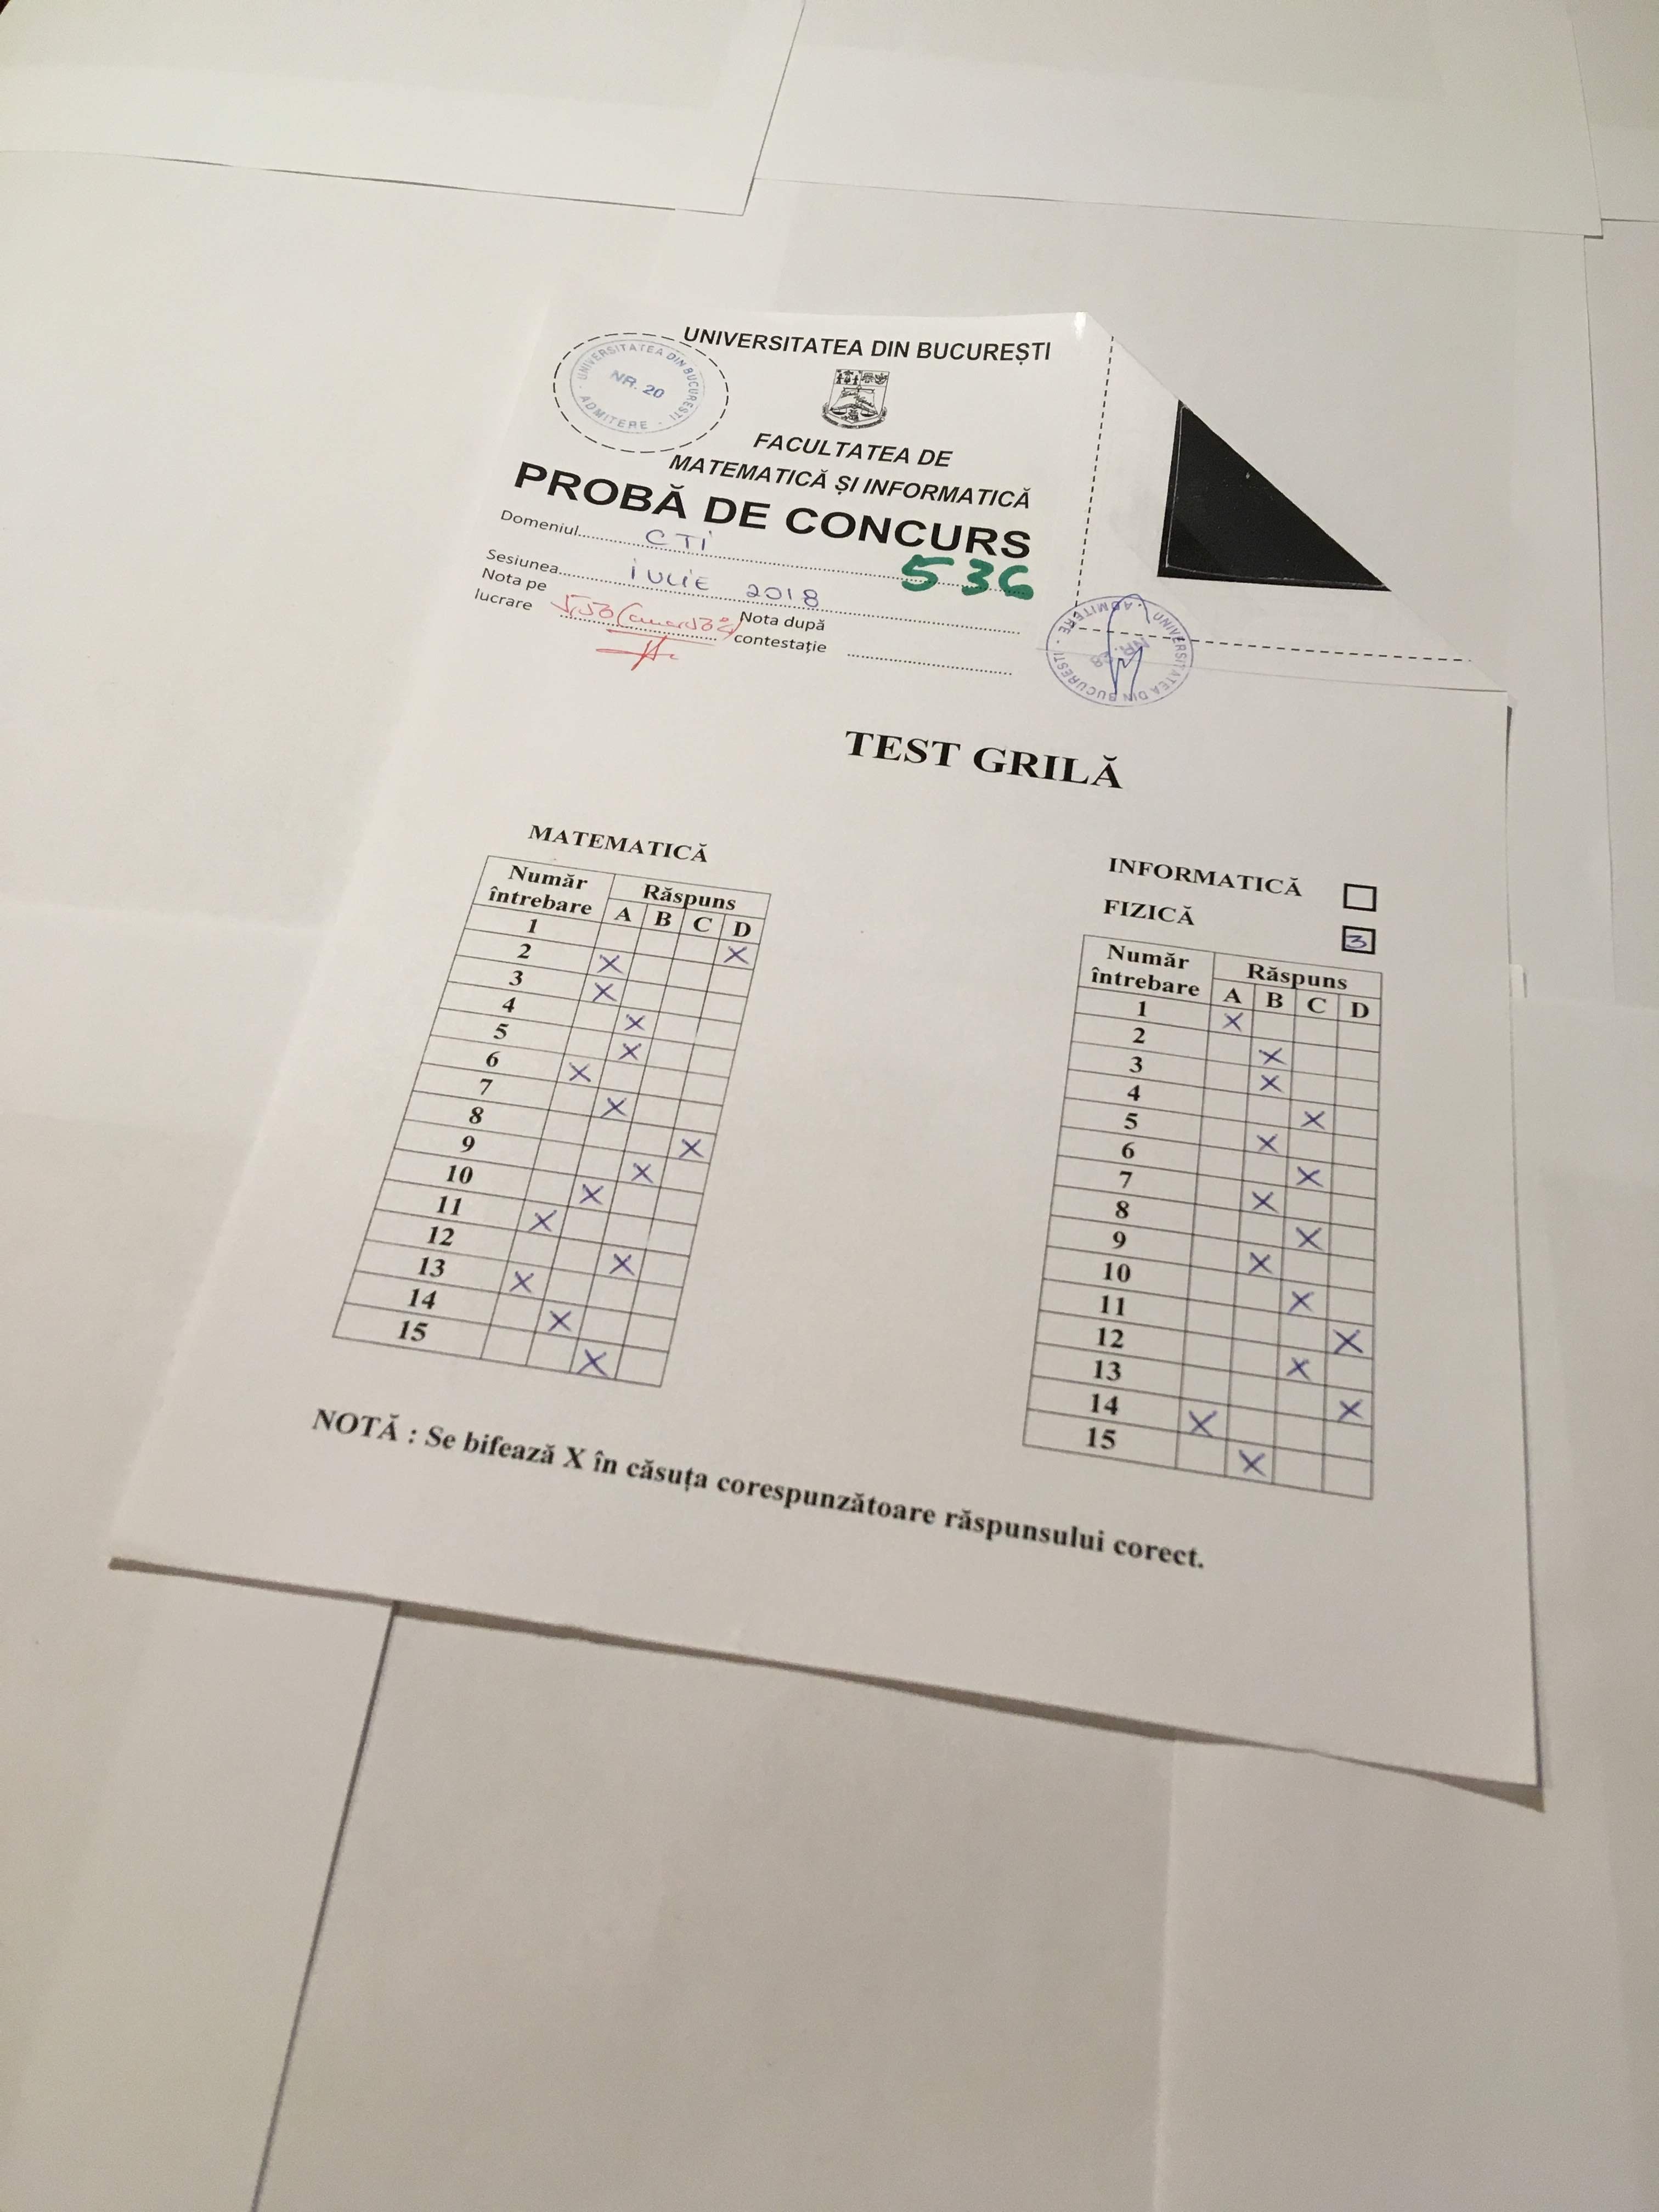 UNIVERSITATEA DIN BUCUREȘTI
UNIVERSITATEA DIN BUCURESTI
NR. 20
ADMITERE
FACULTATEA DE
MATEMATICĂ ȘI INFORMATICĂ
PROBĂ DE CONCURS
Domeniul CTI
536
Sesiunea IULIE 2018
Nota pe
lucrare 5,50
Nota după
contestație
UNIVERSITATEA DIN BUCURESTI
NR. 28
ADMITERE
TEST GRILĂ
MATEMATICĂ
Număr
întrebare
Răspuns
A B C D
1 X
2 X
3 X
4 X
5 X
6 X
7 X
8 X
9 X
10 X
11 X
12 X
13 X
14 X
15 X
INFORMATICĂ
FIZICĂ 3
Număr
întrebare
Răspuns
A B C D
1 X
2 X
3 X
4 X
5 X
6 X
7 X
8 X
9 X
10 X
11 X
12 X
13 X
14 X
15 X
NOTĂ : Se bifează X în căsuța corespunzătoare răspunsului corect.